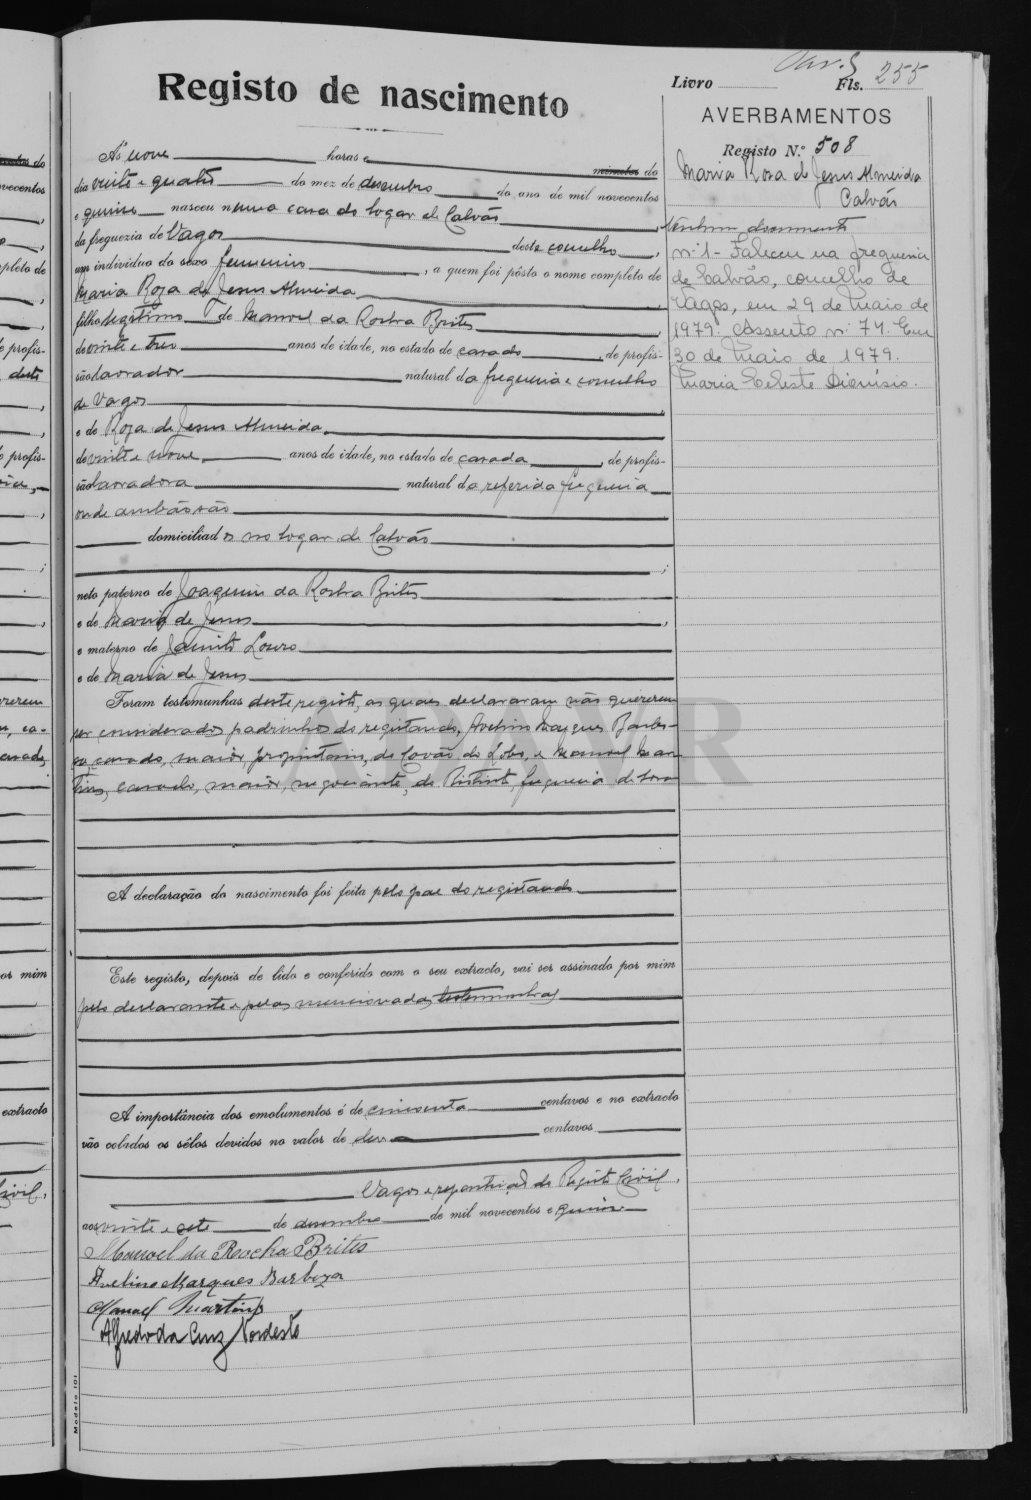 Registo de nascimento
Livro Fls. 255
AVERBAMENTOS
Registo N.º 508
Maria Rosa de Jesus Almeida
Calvão
Nenhum documento
nº 1 - Faleceu na freguesia
de Calvão, concelho de
Vagos, em 29 de Maio de
1979. Assento nº 74. Em
30 de Maio de 1979.
Maria Celeste Dionísio.
Ás nove horas e minutos do
dia vinte e quatro do mez de dezembro do ano de mil novecentos
e quinze nasceu numa casa do logar de Calvão,
da freguezia de Vagos deste concelho,
um individuo do sexo femenino, a quem foi pôsto o nome completo de
Maria Roza de Jesus Almeida,
filho legitimo de Manoel da Rocha Brites,
de vinte e tres anos de idade, no estado de casado, de profis-
são lavrador natural da freguezia e concelho
de Vagos,
e de Roza de Jesus Almeida,
de vinte e nove, anos de idade, no estado de casada, de profis-
são lavradora natural da referida freguezia
onde ambos são
domiciliados no logar de Calvão
;
neto paterno de Joaquim da Rocha Brites
e de Maria de Jesus,
e materno de Jacinto Louro
e de Maria de Jesus
Foram testemunhas deste registo, as quaes declararam não quererem
ser considerados padrinhos do registando, Avelino Marques Barbo-
za, casado, maior, proprietario, de Covão do Lobo, e Manoel Mar-
tins, casado, maior, negociante, de freguezia de
A declaração do nascimento foi feita pelo pae do registando
Este registo, depois de lido e conferido com o seu extracto, vai ser assinado por mim
pelo declarante e pelas mencionadas testemunhas
A importância dos emolumentos é de cincoenta centavos e no extracto
vão colados os sêlos devidos no valor de dez centavos
Vagos e repartição do Registo Civil,
aos vinte e sete de dezembro de mil novecentos e quinze
Manoel da Rocha Brites
Avelino Marques Barboza
Manoel Martins
Alfredo da Cruz Nordeste
Modelo 101